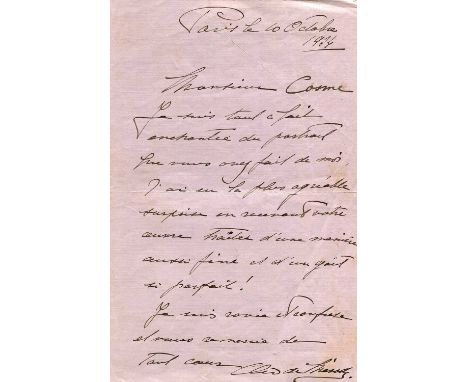 Paris le 10 Octobre
1924
Monsieur Cosme
Je suis tout à fait
enchantée du portrait
que vous avez fait de moi,
J'ai eu la plus agréable
surprise en recevant votre
œuvre traitée d'une manière
aussi fine et d'un goût
si parfait!
Je suis ravie et
et vous remercie de
tout cœur Cléo de Mérode